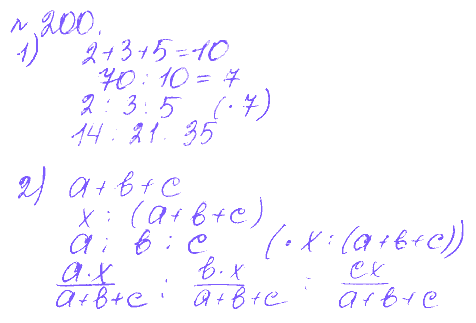 №200.
1) 2+3+5=10
70:10=7
2:3:5 (·7)
14:21:35
2) a+b+c
x:(a+b+c)
a:b:c (·x:(a+b+c))
a·x/a+b+c : b·x/a+b+c : cx/a+b+c